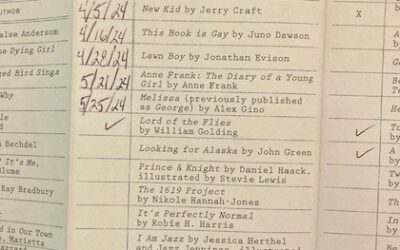 AUTHOR
alse Anderson
e Dying Girl
ged Bird Sings
Why
le
d
n Bechdel
? It's Me,
lume
Ray Bradbury
d in Our Town
, Marietta
4/5/24 New Kid by Jerry Craft
4/16/24 This Book is Gay by Juno Dawson
4/28/24 Lawn Boy by Jonathan Evison
5/21/24 Anne Frank: The Diary of a Young
Girl by Anne Frank
5/25/24 Melissa (previously published
as George) by Alex Gino
✓ Lord of the Flies
by William Golding
Looking for Alaska by John Green
Prince & Knight by Daniel Haack,
illustrated by Stevie Lewis
The 1619 Project
by Nikole Hannah-Jones
It's Perfectly Normal
by Robie H. Harris
I Am Jazz by Jessica Herthel
and Jazz Jennings, illustrated
X
✓
✓ A